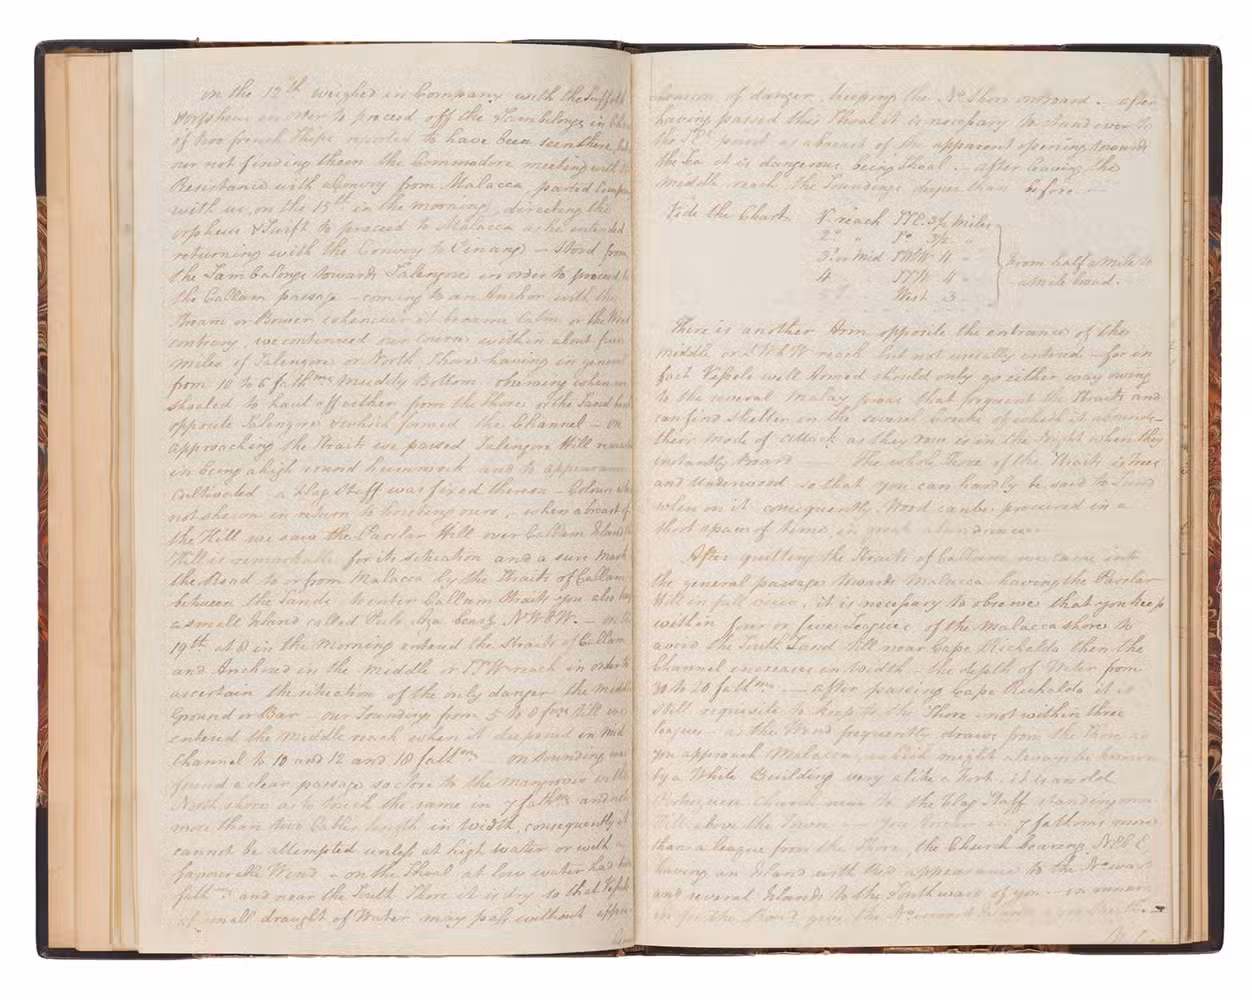 on the 12th weighed in Company with the Suffolk
& Orpheus in order to proceed off the Sambelongs in
of two french Ships reported to have been seen there, but
our not finding them the Commodore meeting with the
Resistance with a Convoy from Malacca parted Company
with us, on the 15th in the morning, directing the
Orpheus & Swift to proceed to Malacca as he intended
returning with the Convoy to Pinang – Stood from
the Sambelongs towards Salengore in order to proceed to
the Callam passage – coming to an Anchor with the
Stream or Bower whenever it became Calm or the Wind
contrary we continued our Course within about five
miles of Salengore or North Shore having in general
from 10 to 6 fathms Muddy Bottom observing when we
shoaled to haul off either from the Shore or the Sand bank
opposite Salengore & which formed the Channel – on
approaching the Straits we passed Salengore Hill
in being a high round hummock and to appearance
Cultivated a Flag Staff was fixed thereon – Colours
not shewn in return to hoisting ours, when abreast of
the Hill we saw the Parclar Hill over Callam Island
Hill is remarkable for its situation and a sure mark
the Road to or from Malacca by the Straits of Callam
between the Sands to enter Callam Straits you also
a small Island called Pulo bears NWbW. –
19th at 8 in the Morning entered the Straits of Callam
and Anchored in the Middle or reach in order to
ascertain the situation of the only danger the middle
Ground or Bar – our Soundings from 5 to 8 fms till we
entered the Middle reach when it deepened in Mid
Channel to 10 and 12 and 18 fathms on Sounding we
found a clear passage so close to the mangroves on the
North shore as to touch the same in 7 fathms and not
more than two Cables length in Width, consequently it
cannot be attempted unless at high water or with a
favourable Wind – on the Shoal at low water had
fathms and near the South Shore it is dry so that Vessels
of small draught of Water may pass without
of danger keeping the No Shore onboard – after
having passed this Shoal it is necessary to stand over to
the point as abreast of the apparent opening towards
the Sea it is dangerous being Shoal – after leaving the
Middle reach the Soundings deeper than before –
Vide the Chart 1st reach 3½ Miles
2d " So 3½ "
3d or Mid 4 "
4 4 "
West 3
from half a Mile to
a Mile broad.
There is another Arm opposite the entrance of the
middle or SWbW reach but not usually entered – for in
fact Vessels well Armed should only go either way owing
to the several Malay proas that frequent the Straits and
can find shelter in the several Creeks of which it abounds –
their mode of attack as they row is in the Night when they
instantly Board — The whole Shore of the Straits is Trees
and Underwood so that you can hardly be said to Land
when on it consequently Wood can be procured in a
short space of time, in great abundance –
After quitting the Straits of Callam we came into
the general passage towards Malacca having the Parclar
Hill in full view, it is necessary to observe that you keep
within four or five Leagues of the Malacca shore to
avoid the South Sand till near Cape Richaldo then the
Channel increases in Width – the depth of Water from
30 to 20 fathms — after passing Cape Richaldo it is
still requisite to keep to the Shore – not within three
leagues – as the Wind frequently draws from the Shore as
you approach Malacca, which might always be known
by a White Building very alike a Fort – it is an old
Portuguese Church near to the Flag Staff standing on a
Hill above the Town — you Anchor in 7 fathoms more
than a league from the Shore, the Church bearing NEbE
having an Island with Trees appearance to the No ward
and several Islands to the Southward of you – in running
in for the Road give the No ward Island